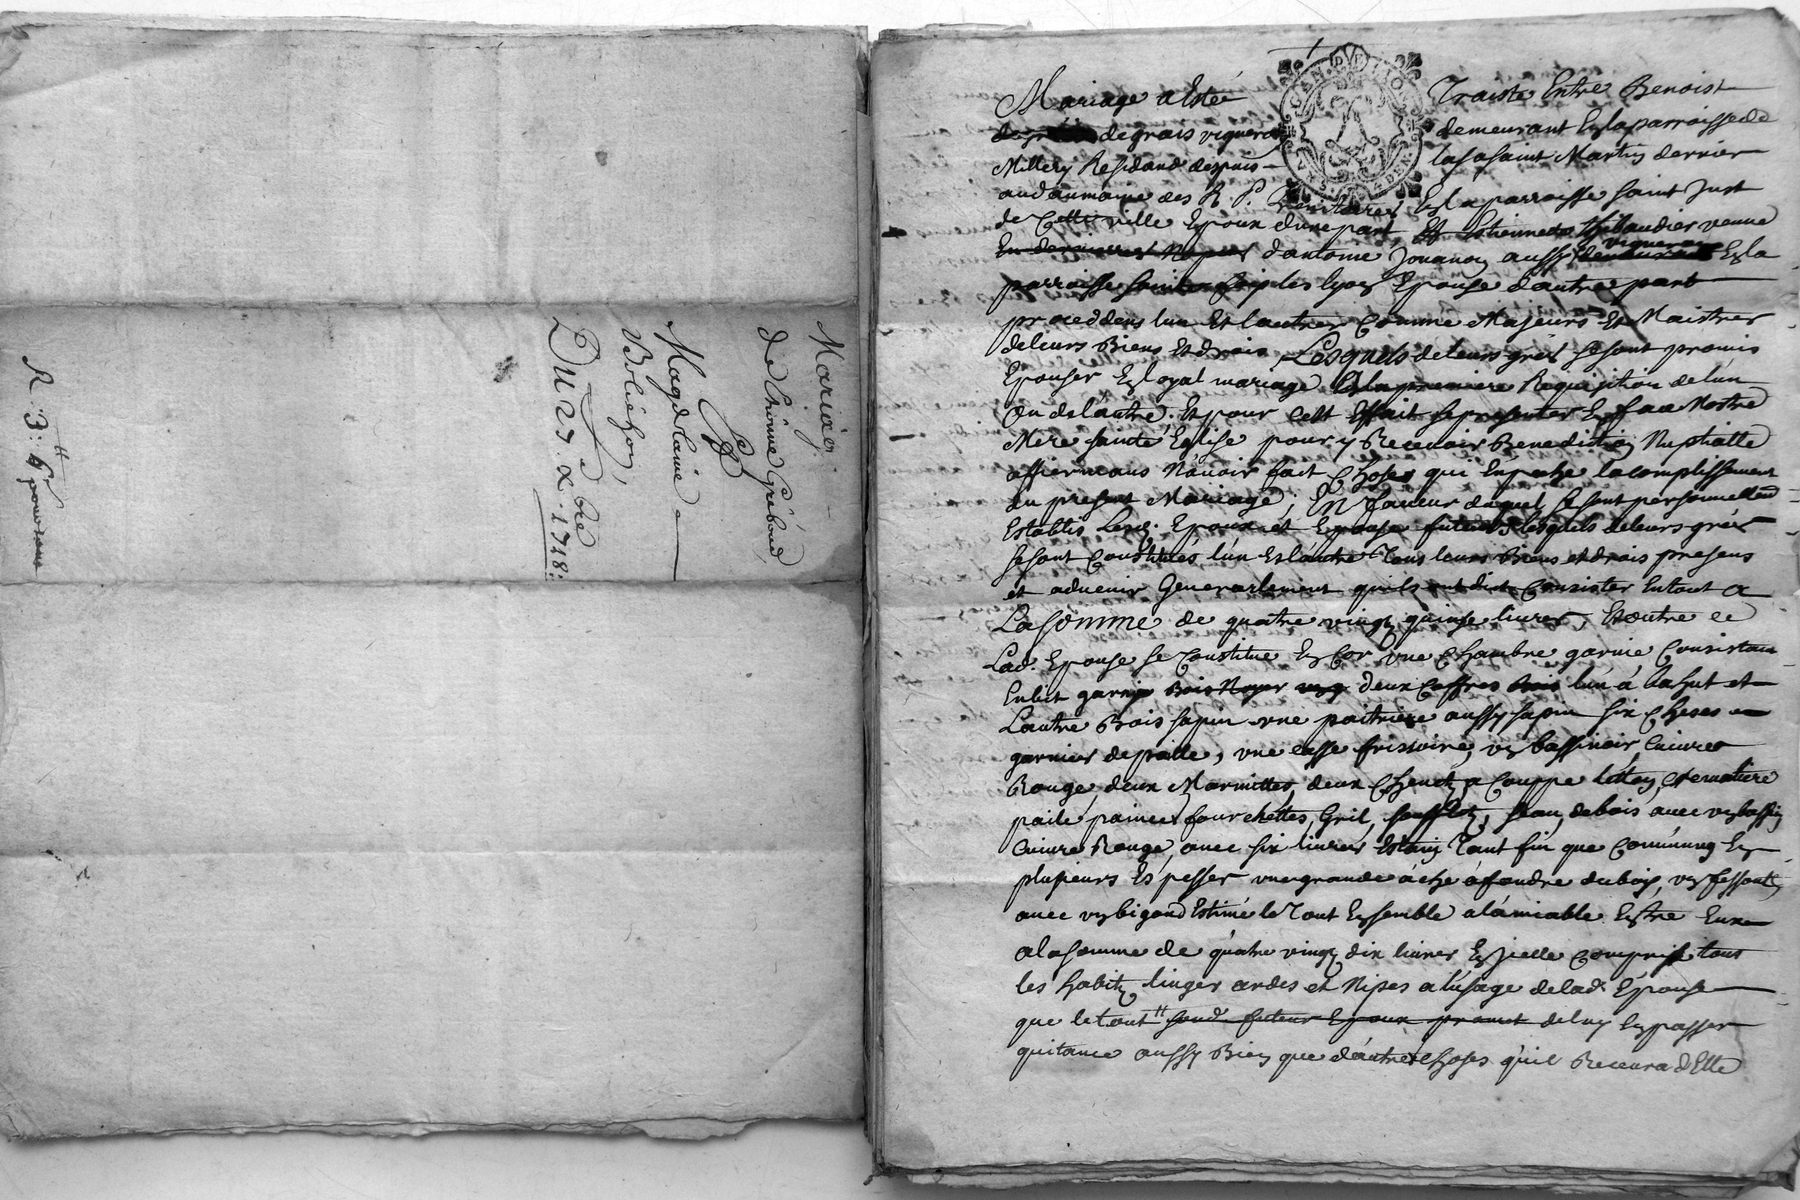 Mariage
de Estienne Grebaud,
Et
Magdelaine
Bolieson,
Du 27. xbre
1718:
R 3: tt pour
GEN. DE LYON
Mariage a Esté Traisté Entre Benoist
degrais vigneron demeurant En la parroisse de
Millery Residand despuis la saint Martin dernier
au domaine des R. P. En la parroisse saint Just
de Cette ville Epoux d'une part, Et Estiennette Thibaudier veuve
En dernieres Nopces d'antoine Jouanon aussy vigneron En la
parroisse saint lyon Epouse d'autre part
proceddens l'un Et l'autre Comme Majeurs Et Maistres
de leurs Biens Et drois, Lesquels de leurs grés se sont promis
Epouser En loyal mariage A la premiere Requisition de l'un
Ou de l'autre. Et pour Cest Effait se presenter En face Nostre
Mere sainte Eglise pour y Recevoir Benediction Nuptialle
affiermans N'avoir fait Choses qui Enpeche lacomplissement
du present Mariage; EN faveur duquel se sont personnellement
Establis Lesd. Epoux et Epouse futurs lesquels de leurs grés
se sont Constitués l'un Et l'autre Tous leurs Biens et drois presens
et advenir Generarlement qu'ils ont dict Consister En tout a
La somme de quatre vingt quinse livres, Et outre ce
Lad. Epouse se Constitue En Cor vne Chambre garnie Consistant
En lit garny Bois Noyer deux Coffres l'un à bahut et
L'autre Bois sapin vne paitriere aussy sapin six Cheses
garnies de paille, vne casse frissoire, vn bassinoir Cuivre
Rouge, deux Marmittes, deux Chenetz a Couppe letton, Cremaliere
paile fourchettes, Gril, soufflet, seau de bois avec vn bassin
Cuivre Rouge avec six livres Estain Tant fin que Commung En
plusieurs Espesses vne grande ache à fendre du bois, vn fessoult
avec vn bigond Estimé le Tout Ensemble a l'amiable Entre Eux
a la somme de quatre vingt dix livres En icelle Compris tous
les habitz linges ardes et Nipes a l'usage de lad. Epouse
que le tout tt sond. futeur Epoux promet de luy En passer
quitance aussy Bien que d'autres choses qu'il Recevra d'Elle